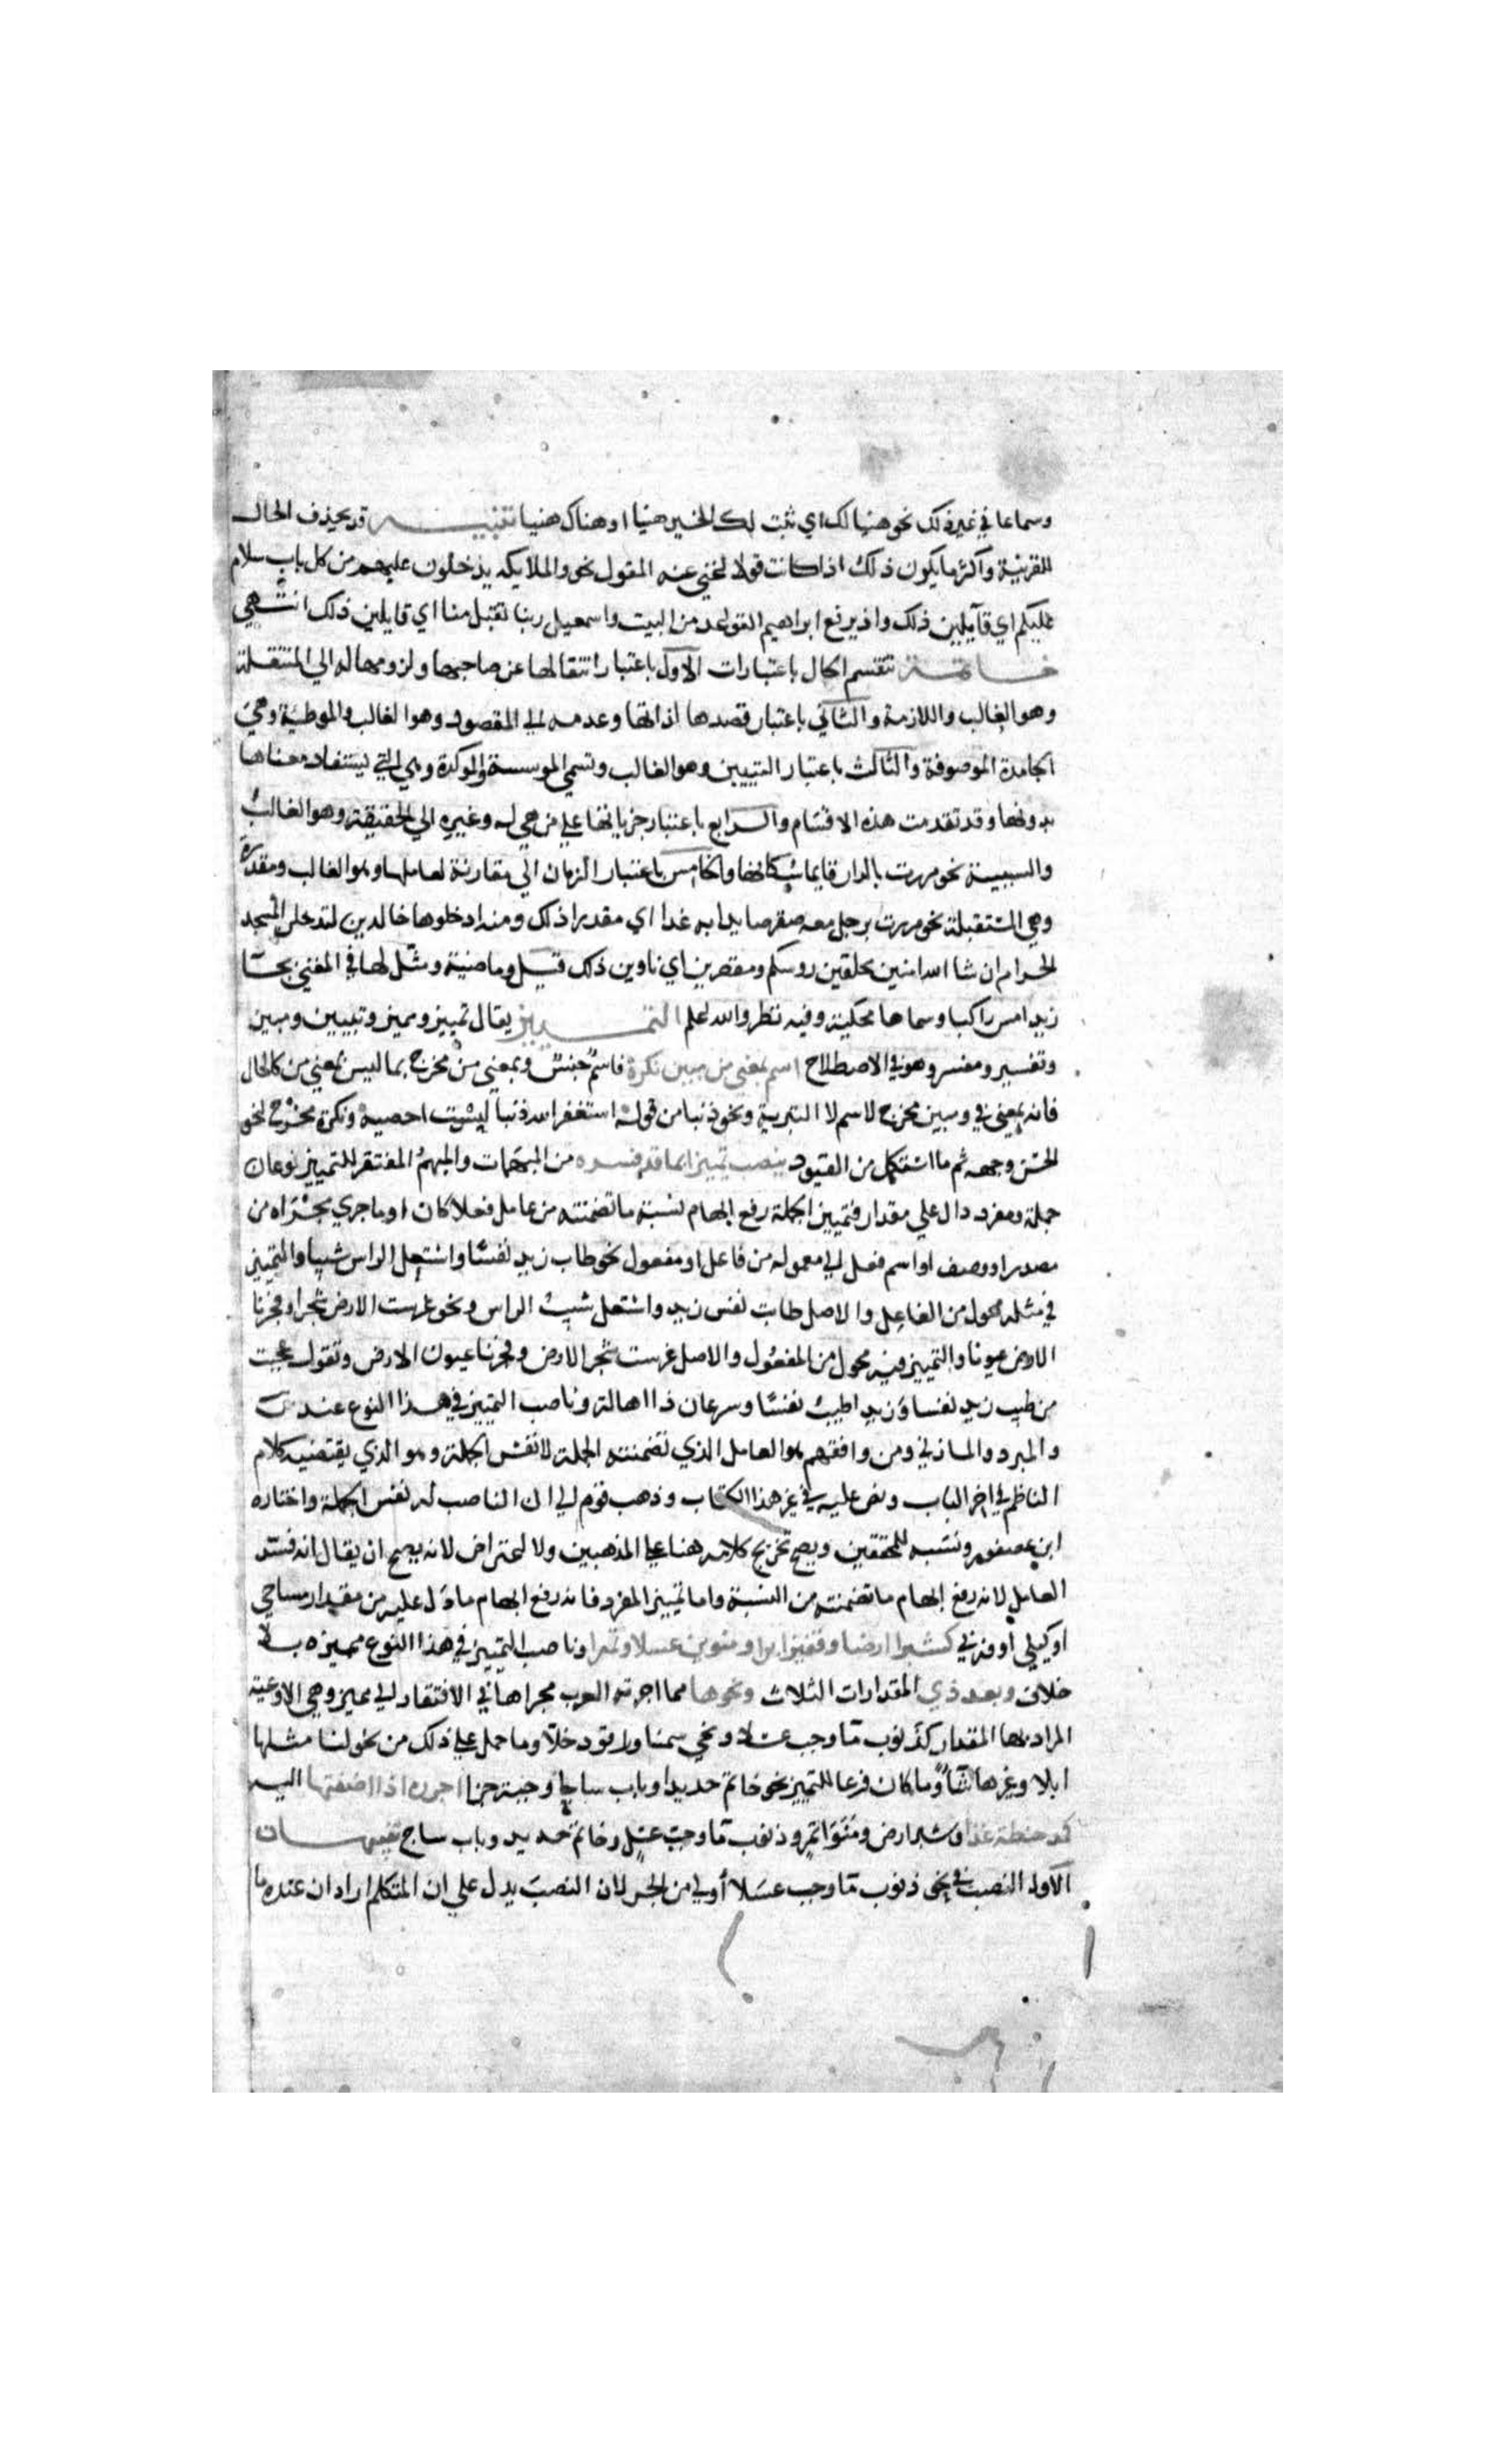 وسماعا في غير ذلك نحو هنيا لك اي ثبت لك الخير هنيا او هناك هنيا تنبيه قد يحذف الحال
للقرينة واكثر ما يكون ذلك اذا كانت قولا لغني عنه المقول نحو والملايكة يدخلون عليهم من كل باب سلام
عليكم اي قايلين ذلك واذ يرفع ابراهيم القواعد من البيت واسمعيل ربنا تقبل منا اي قايلين ذلك انتهي
خاتمة تنقسم الحال باعتبارات الاول باعتبار انتقالها عن صاحبها ولزومها له الي المنتقلة
وهو الغالب واللازمة والثاني باعتبار قصدها لذاتها وعدمه الي المقصود وهو الغالب والموطية وهي
الجامدة الموصوفة والثالث باعتبار التبيين وهو الغالب وتسمي الموسسة والموكدة وهي التي يستفاد معناها
بدونها وقد تقدمت هذه الاقسام والرابع باعتبار جريانها علي من هي له وغيره الي الحقيقة وهو الغالب
والسببية نحو مررت بالدار قايما سكانها والخامس باعتبار الزمان الي مقارنة لعاملها وهو الغالب ومقدرة
وهي المستقبلة نحو مررت برجل معه صقر صايدا به غدا اي مقدرا ذلك ومنه ادخلوها خالدين لتدخلن المسجد
الحرام ان شا الله امنين محلقين روسكم ومقصرين اي ناوين ذلك قيل وماضية ومثل لها في المغني بجا
زيد امس راكبا وسماها محكية وفيه نظر والله اعلم التمييز يقال تمييز ومميز وتبيين ومبين
وتفسير ومفسر وهو في الاصطلاح اسم بمعني من مبين نكرة فاسم جنس وبمعني من مخرج بما ليس بمعني من كالحال
فانه بمعني في ومبين مخرج لاسم لا التبرية ونحو ذنبا من قوله استغفر الله ذنبا لست احصيه ونكرة مخرج لنحو
الحسن وجهه ثم ما استكمل من القيود ينصب تمييزا بما قد فسره من المبهمات والمبهم المفتقر للتمييز نوعان
جملة ومفرد دال علي مقدار فتمييز الجملة رفع ابهام نسبة ما تضمنته من عامل فعلا كان او ما جري مجراه من
مصدر او وصف او اسم فعل الي معموله من فاعل او مفعول نحو طاب زيد نفسا واشتعل الراس شيبا والتمييز
في مثله محول من الفاعل والاصل طابت نفس زيد واشتعل شيب الراس ونحو غرست الارض شجرا وفجرنا
الارض عيونا والتمييز فيه محول من المفعول والاصل غرست شجر الارض وفجرنا عيون الارض وتقول عجبت
من طيب زيد نفسا وزيد اطيب نفسا وسرعان ذا اهالة وناصب التمييز في هذا النوع عند س
والمبرد والمازني ومن وافقهم هو العامل الذي تضمنته الجملة لا نفس الجملة وهو الذي يقتضيه كلام
الناظم في اخر الباب ونص عليه في غير هذا الكتاب وذهب قوم الي ان الناصب له نفس الجملة واختاره
ابن عصفور ونسبه للمحققين ويصح تخريج كلامه هنا علي المذهبين ولا اعتراض لانه يصح ان يقال انه فسر
العامل لانه رفع ابهام ما تضمنته من النسبة واما تمييز المفرد فانه رفع ابهام ما دل عليه من مقدار مساحي
او كيلي او وزني كشبر ارضا وقفيز برا ومنوين عسلا وتمرا وناصب التمييز في هذا النوع مميزه بلا
خلاف وبعد ذي المقدارات الثلاث ونحوها مما اجرته العرب مجراها في الافتقار الي مميز وهي الاوعية
المراد بها المقدار كذنوب ما وحب عسلا ونحي سمنا وراقود خلا وما حمل علي ذلك من نحو لنا مثلها
ابلا وغيرها شا وما كان فرعا للتمييز نحو خاتم حديدا وباب ساجا وجبة خزا اجرره اذا اضفتها اليه
كمد حنطة غذا وشبر ارض ومنوا تمر وذنوب ما وحب عسل وخاتم حديد وباب ساج تنبيهان
الاول النصب في نحو ذنوب ما وحب عسلا أولي من الجر لان النصب يدل علي ان المتكلم اراد ان عنده ما